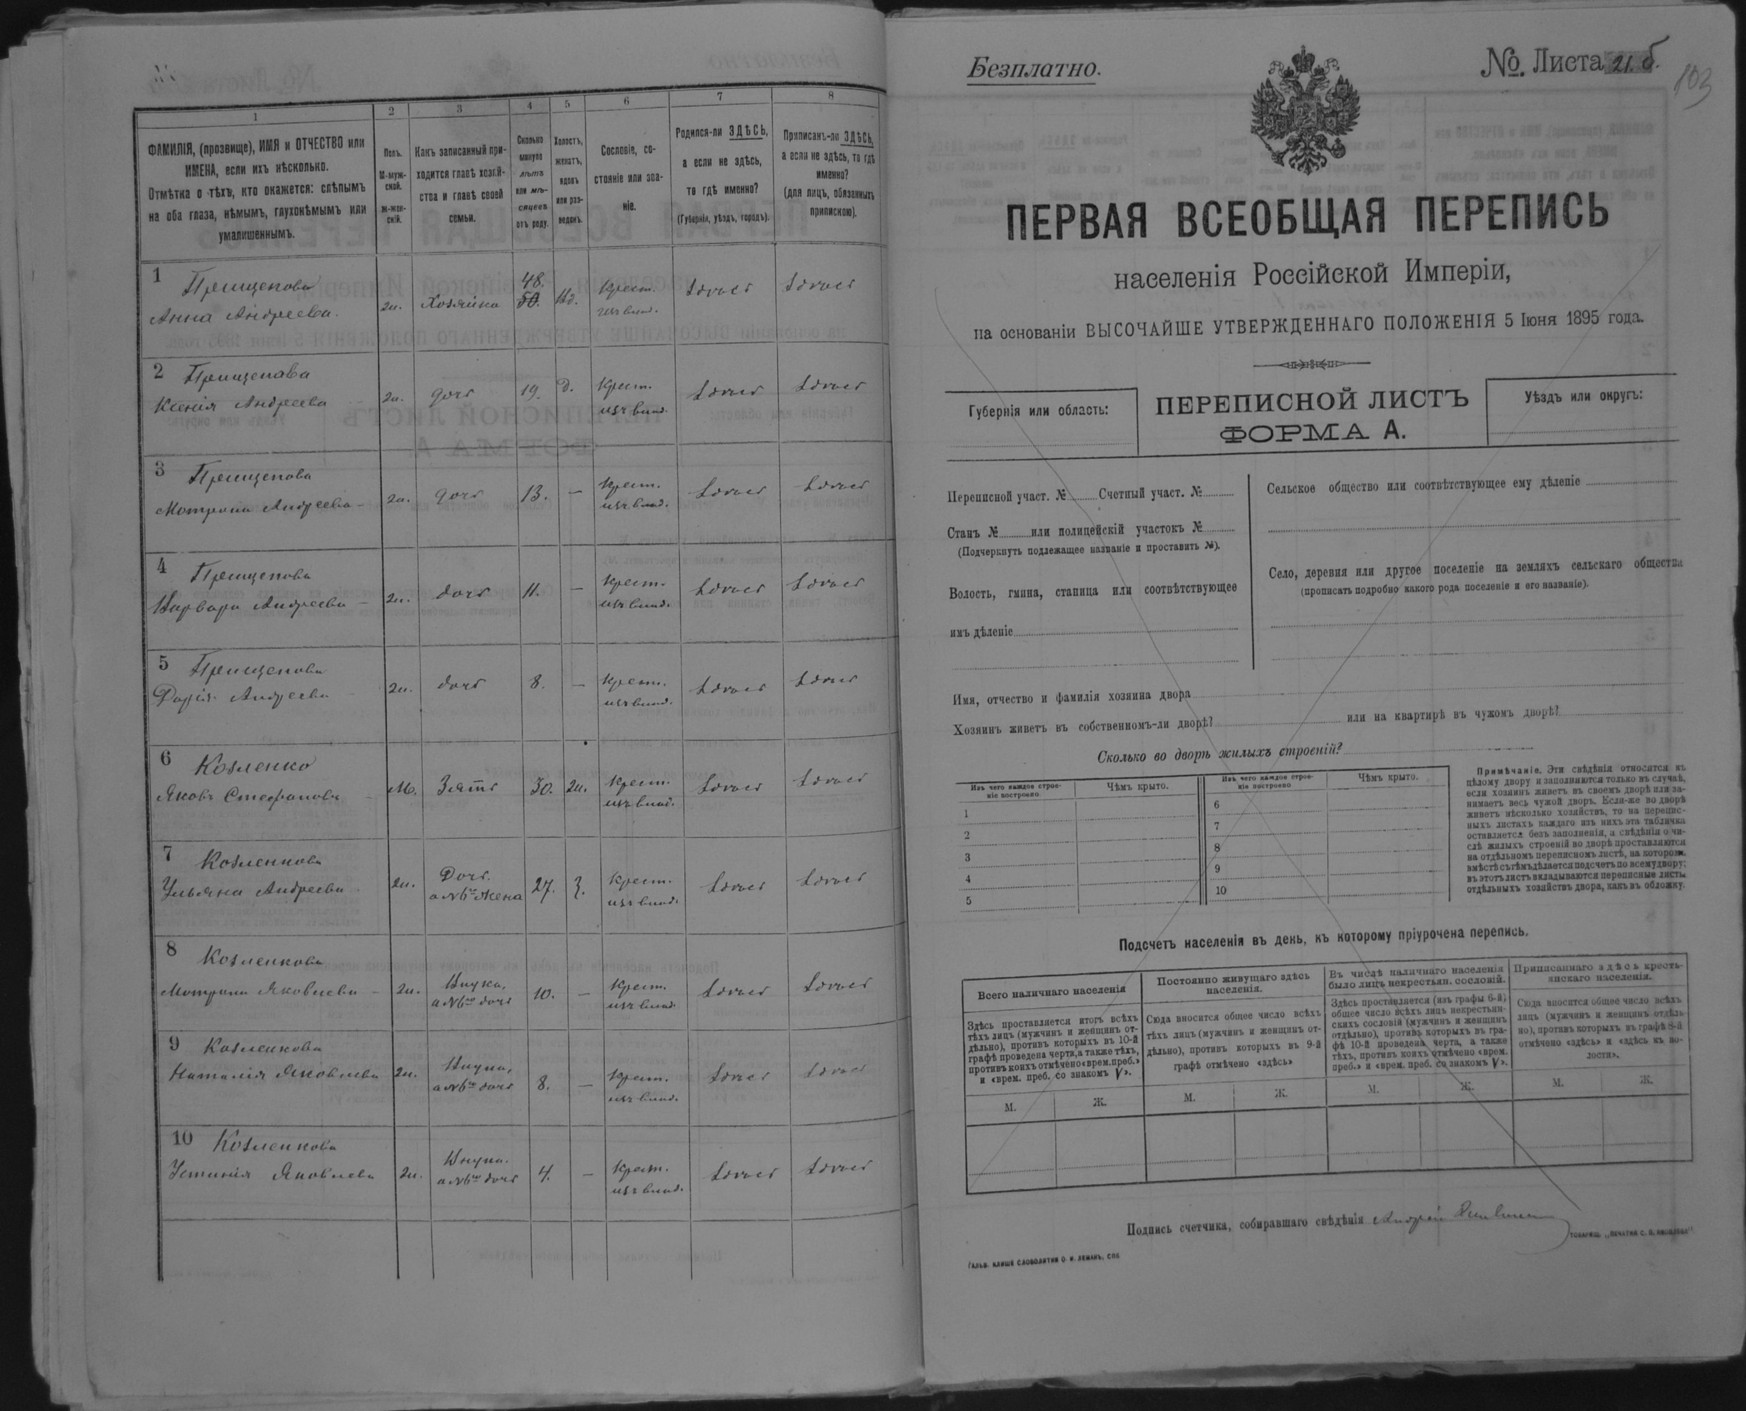 1
2
3
4
5
6
7
8
ФАМИЛІЯ, (прозвище), ИМЯ и ОТЧЕСТВО или
ИМЕНА, если ихъ нѣсколько.
Отмѣтка о тѣхъ, кто окажется: слѣпымъ
на оба глаза, нѣмымъ, глухонѣмымъ или
умалишеннымъ.
Полъ.
М-муж-
ской.
ж-жен-
скій.
Какъ записанный при-
ходится главѣ хозяй-
ства и главѣ своей
семьи.
Сколько
минуло
лѣтъ
или мѣ-
сяцевъ
отъ роду.
Холостъ,
женатъ,
вдовъ
или раз-
веденъ.
Сословіе, со-
стояніе или зва-
ніе.
Родился-ли ЗДѢСЬ,
а если не здѣсь,
то гдѣ именно?
(Губернія, уѣздъ, городъ).
Приписанъ-ли ЗДѢСЬ,
а если не здѣсь, то гдѣ
именно?
(для лицъ, обязанныхъ
припискою).
1 Прищепова
Анна Андреева. ж. Хозяйка 48. 50. Вд. Крест. изъ влад. Здѣсь Здѣсь
2 Прищепова
Ксенія Андреева ж. дочь 19. Д. Крест. изъ влад. Здѣсь Здѣсь
3 Прищепова
Мотрона Андреева ж. дочь 13. — Крест. изъ влад. Здѣсь Здѣсь
4 Прищепова
Варвара Андреева ж. дочь 11. — Крест. изъ влад. Здѣсь Здѣсь
5 Прищепова
Дарія Андреева ж. дочь 8. — Крест. изъ влад. Здѣсь Здѣсь
6 Козленко
Яковъ Стефановъ М. Зять 30. ж. Крест. изъ влад. Здѣсь Здѣсь
7 Козленкова
Ульяна Андреева ж. Дочь. а №6му жена 27. З. Крест. изъ влад. Здѣсь Здѣсь
8 Козленкова
Мотрона Яковлева ж. Внука, а №6му дочь 10. — Крест. изъ влад. Здѣсь Здѣсь
9 Козленкова
Наталія Яковлева ж. Внука, а №6му дочь 8. — Крест. изъ влад. Здѣсь Здѣсь
10 Козленкова
Устинія Яковлева ж. Внука. а №6му дочь 4. — Крест. изъ влад. Здѣсь Здѣсь
Безплатно.
№ Листа 21.б.
103
ПЕРВАЯ ВСЕОБЩАЯ ПЕРЕПИСЬ
населенія Россійской Имперіи,
на основаніи ВЫСОЧАЙШЕ УТВЕРЖДЕННАГО ПОЛОЖЕНІЯ 5 Іюня 1895 года.
Губернія или область:
ПЕРЕПИСНОЙ ЛИСТЪ
ФОРМА А.
Уѣздъ или округъ:
Переписной участ. № Счетный участ. №
Станъ № или полицейскій участокъ №
(Подчеркнуть подлежащее названіе и проставить №).
Волость, гмина, станица или соотвѣтствующее
имъ дѣленіе
Сельское общество или соотвѣтствующее ему дѣленіе
Село, деревня или другое поселеніе на земляхъ сельскаго общества
(прописать подробно какого рода поселеніе и его названіе).
Имя, отчество и фамилія хозяина двора
Хозяинъ живетъ въ собственномъ-ли дворѣ? или на квартирѣ въ чужомъ дворѣ?
Сколько во дворѣ жилыхъ строеній?
Изъ чего каждое строе-
ніе построено
Чѣмъ крыто.
Изъ чего каждое строе-
ніе построено
Чѣмъ крыто.
1
2
3
4
5
6
7
8
9
10
Примѣчаніе. Эти свѣдѣнія относятся къ
цѣлому двору и заполняются только въ случаѣ,
если хозяинъ живетъ въ своемъ дворѣ или за-
нимаетъ весь чужой дворъ. Если-же во дворѣ
живетъ нѣсколько хозяйствъ, то на перепис-
ныхъ листахъ каждаго изъ нихъ эта табличка
оставляется безъ заполненія, а свѣдѣнія о чи-
слѣ жилыхъ строеній во дворѣ проставляются
на отдѣльномъ переписномъ листѣ, на которомъ
вмѣстѣ съ тѣмъ дѣлается подсчетъ по всему двору;
въ этотъ листъ вкладываются переписные листы
отдѣльныхъ хозяйствъ двора, какъ въ обложку.
Подсчетъ населенія въ день, къ которому пріурочена перепись.
Всего наличнаго населенія
Здѣсь проставляется итогъ всѣхъ
тѣхъ лицъ (мужчинъ и женщинъ от-
дѣльно), противъ которыхъ въ 10-й
графѣ проведена черта, а также тѣхъ,
противъ коихъ отмѣчено «врем. преб.»
и «врем. преб. со знакомъ V».
Постоянно живущаго здѣсь
населенія.
Сюда вносится общее число всѣхъ
тѣхъ лицъ (мужчинъ и женщинъ от-
дѣльно), противъ которыхъ въ 9-й
графѣ отмѣчено «здѣсь»
Въ числѣ наличнаго населенія
было лицъ некрестьян. сословій.
Здѣсь проставляется (изъ графы 6-й)
общее число всѣхъ лицъ некрестьян-
скихъ сословій (мужчинъ и женщинъ
отдѣльно), противъ которыхъ въ гра-
фѣ 10-й проведена черта, а также
тѣхъ, противъ коихъ отмѣчено «врем.
преб.» и «врем. преб. со знакомъ V».
Приписаннаго здѣсь кресть-
янскаго населенія.
Сюда вносится общее число всѣхъ
лицъ (мужчинъ и женщинъ отдѣль-
но), противъ которыхъ въ графѣ 8-й
отмѣчено «здѣсь» и «здѣсь къ во-
лости».
М. Ж. М. Ж. М. Ж. М. Ж.
Подпись счетчика, собиравшаго свѣдѣнія Андрей
ГАЛЬВ. КЛИШЕ СЛОВОЛИТНИ О. И. ЛЕМАНЪ, СПБ.
ТОВАРИЩ. „ПЕЧАТНЯ С. П. ЯКОВЛЕВА"